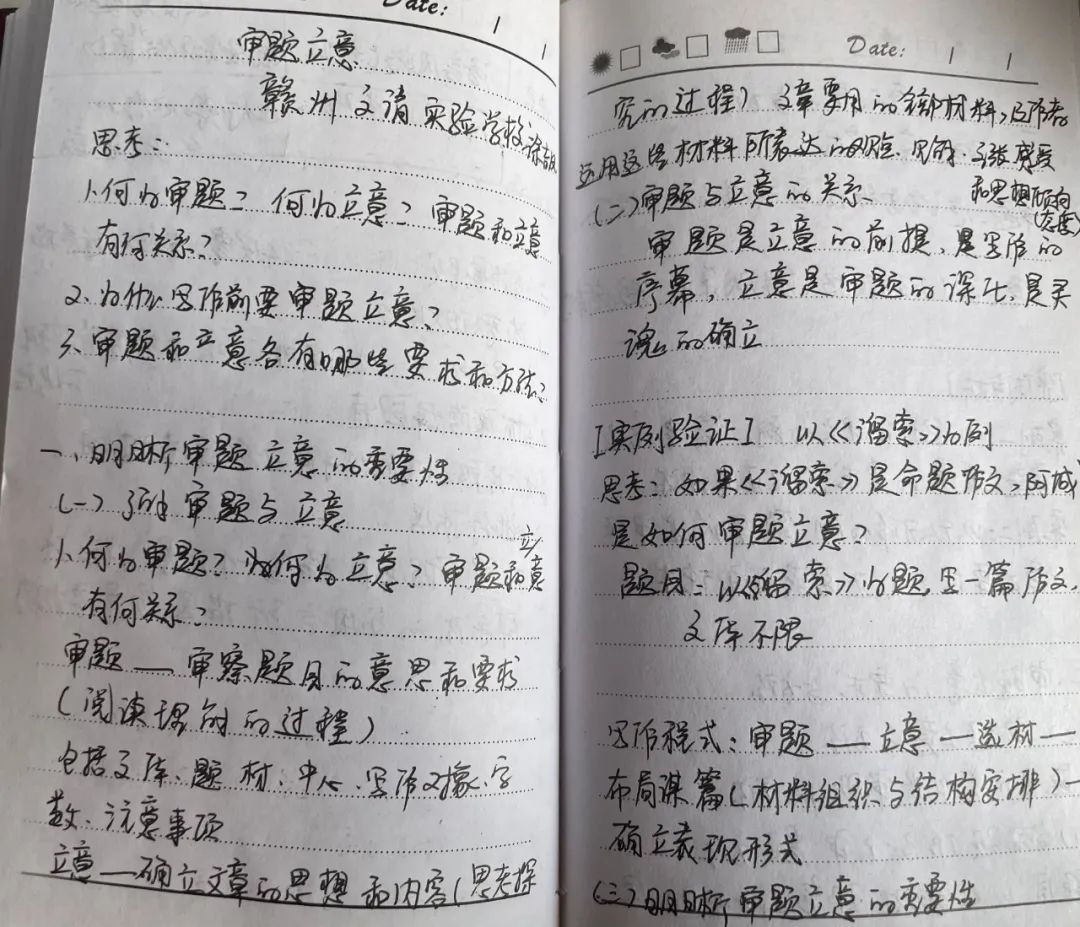 Date:
审题立意
赣州文清实验学校
思考：
1、何为审题？何为立意？审题和立意
有何关系？
2、为什么写作前要审题立意？
3、审题和立意各有哪些要求和方法？
一、明晰审题立意的重要性
(一)了解审题与立意
1、何为审题？为何为立意？审题和立意
有何关系？
审题——审察题目的意思和要求
(阅读理解的过程)
包括文体、题材、中心、写作对象、字
数、注意事项
立意——确立文章的思想和内容(思考探
Date:
究的过程)文章要用的全部材料，及作者
运用这些材料所表达的观点、见解、主张感受
和思想倾向
(态度)
(二)审题与立意的关系
审题是立意的前提，是写作的
序幕，立意是审题的深化，是灵
魂的确立
[实例验证] 以《溜索》为例
思考：如果《溜索》是命题作文，阿城
是如何审题立意？
题目：以《溜索》为题，写一篇作文，
文体不限
写作程式：审题——立意—选材—
布局谋篇(材料组织与结构安排)—
确立表现形式
(三)明晰审题立意的重要性